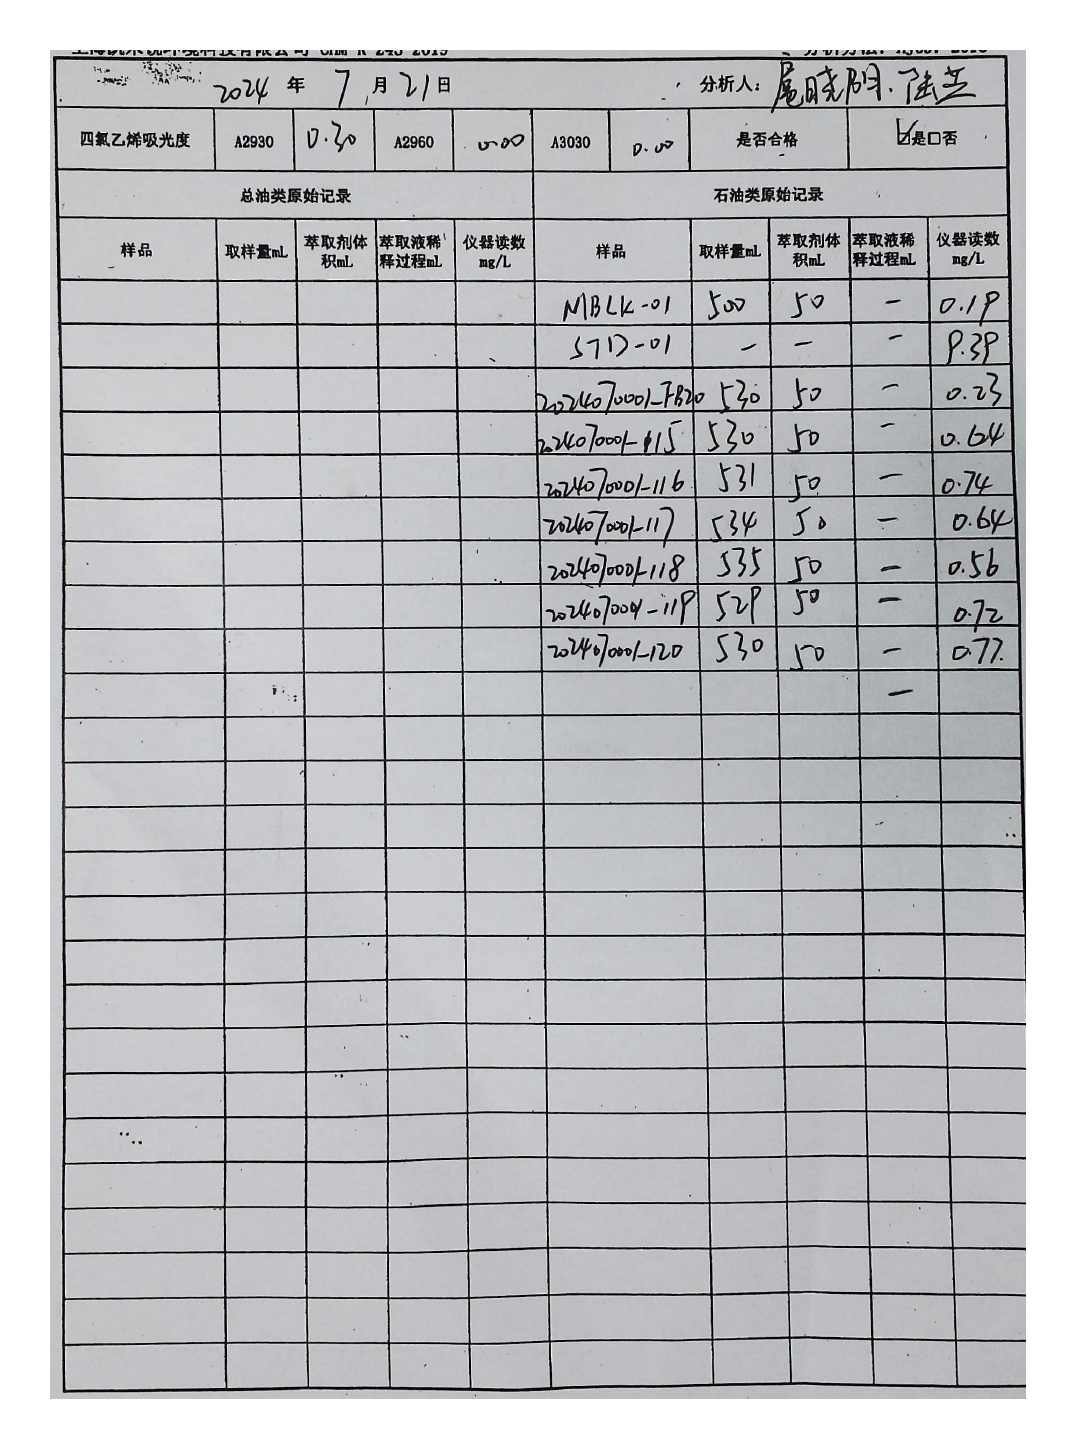 2024 年 7 月 21 日 分析人：
四氯乙烯吸光度 A2930 0.30 A2960 0.00 A3030 0.00 是否合格 ☑是□否
总油类原始记录 石油类原始记录
样品 取样量mL 萃取剂体积mL 萃取液稀释过程mL 仪器读数mg/L 样品 取样量mL 萃取剂体积mL 萃取液稀释过程mL 仪器读数mg/L
MBLK-01 500 50 — 0.19
STD-01 — — — 9.39
2024070001-FB20 530 50 — 0.23
2024070001-115 530 50 — 0.64
2024070001-116 531 50 — 0.74
2024070001-117 534 50 — 0.64
2024070001-118 535 50 — 0.56
2024070001-119 529 50 — 0.72
2024070001-120 530 50 — 0.77
—